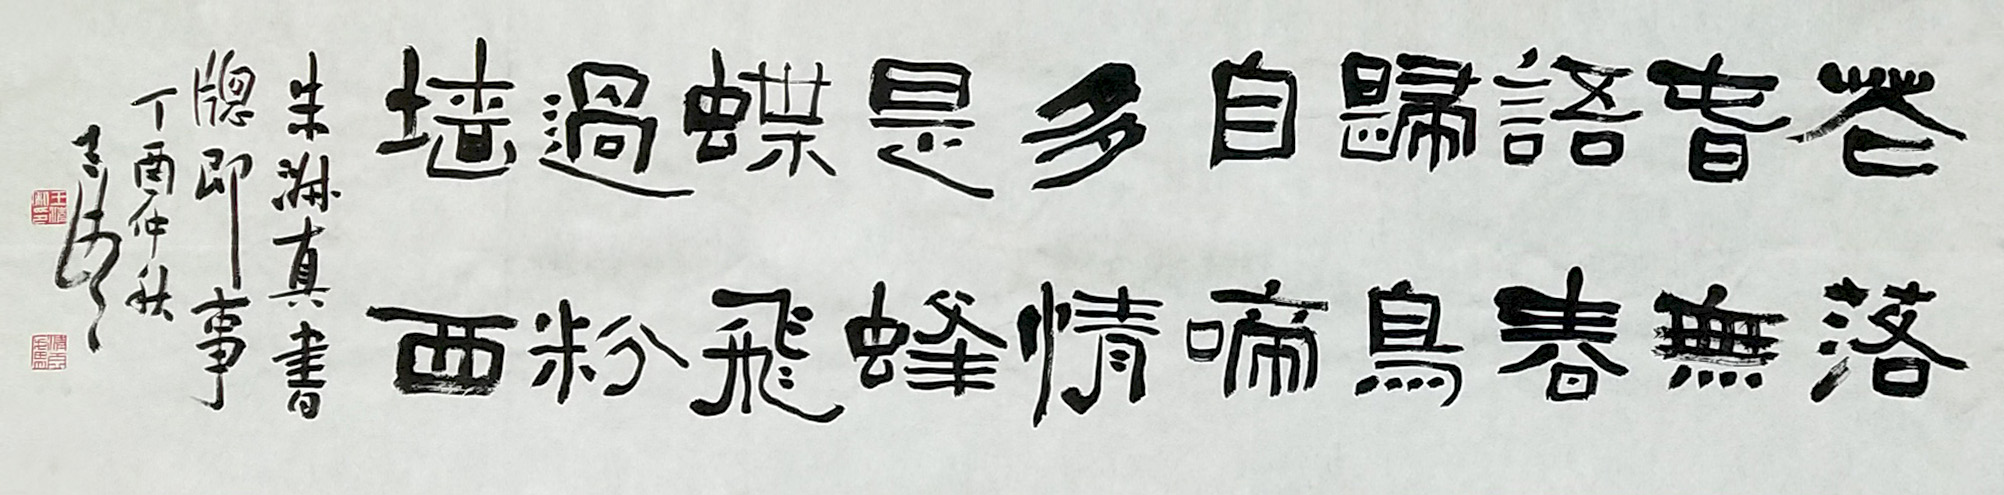 花落
旾無
語春
歸鳥
自啼
多情
是蜂
蝶飛
過粉
墙西
朱淑真書
牕即事
丁酉仲秋